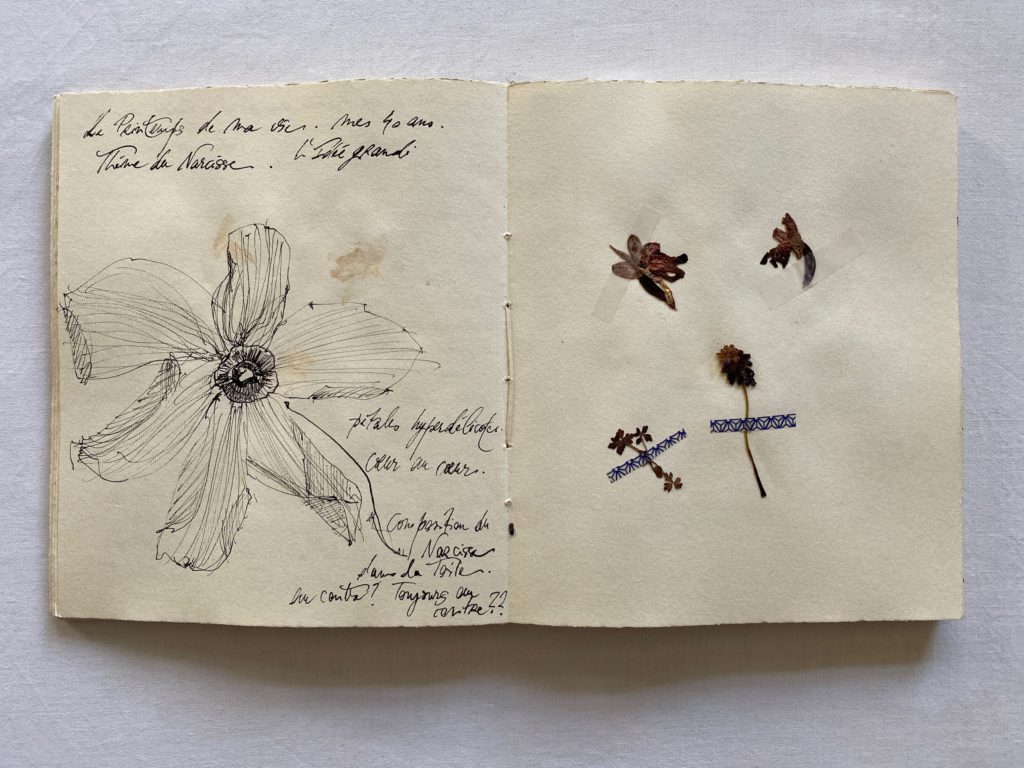 Le Printemps de ma vie. mes 40 ans.
Thème du Narcisse. L'Idée grandi
pétales hyper délicates.
cœur au cœur.
Composition du
Narcisse
dans la Toile.
au centre? Toujours au
centre??